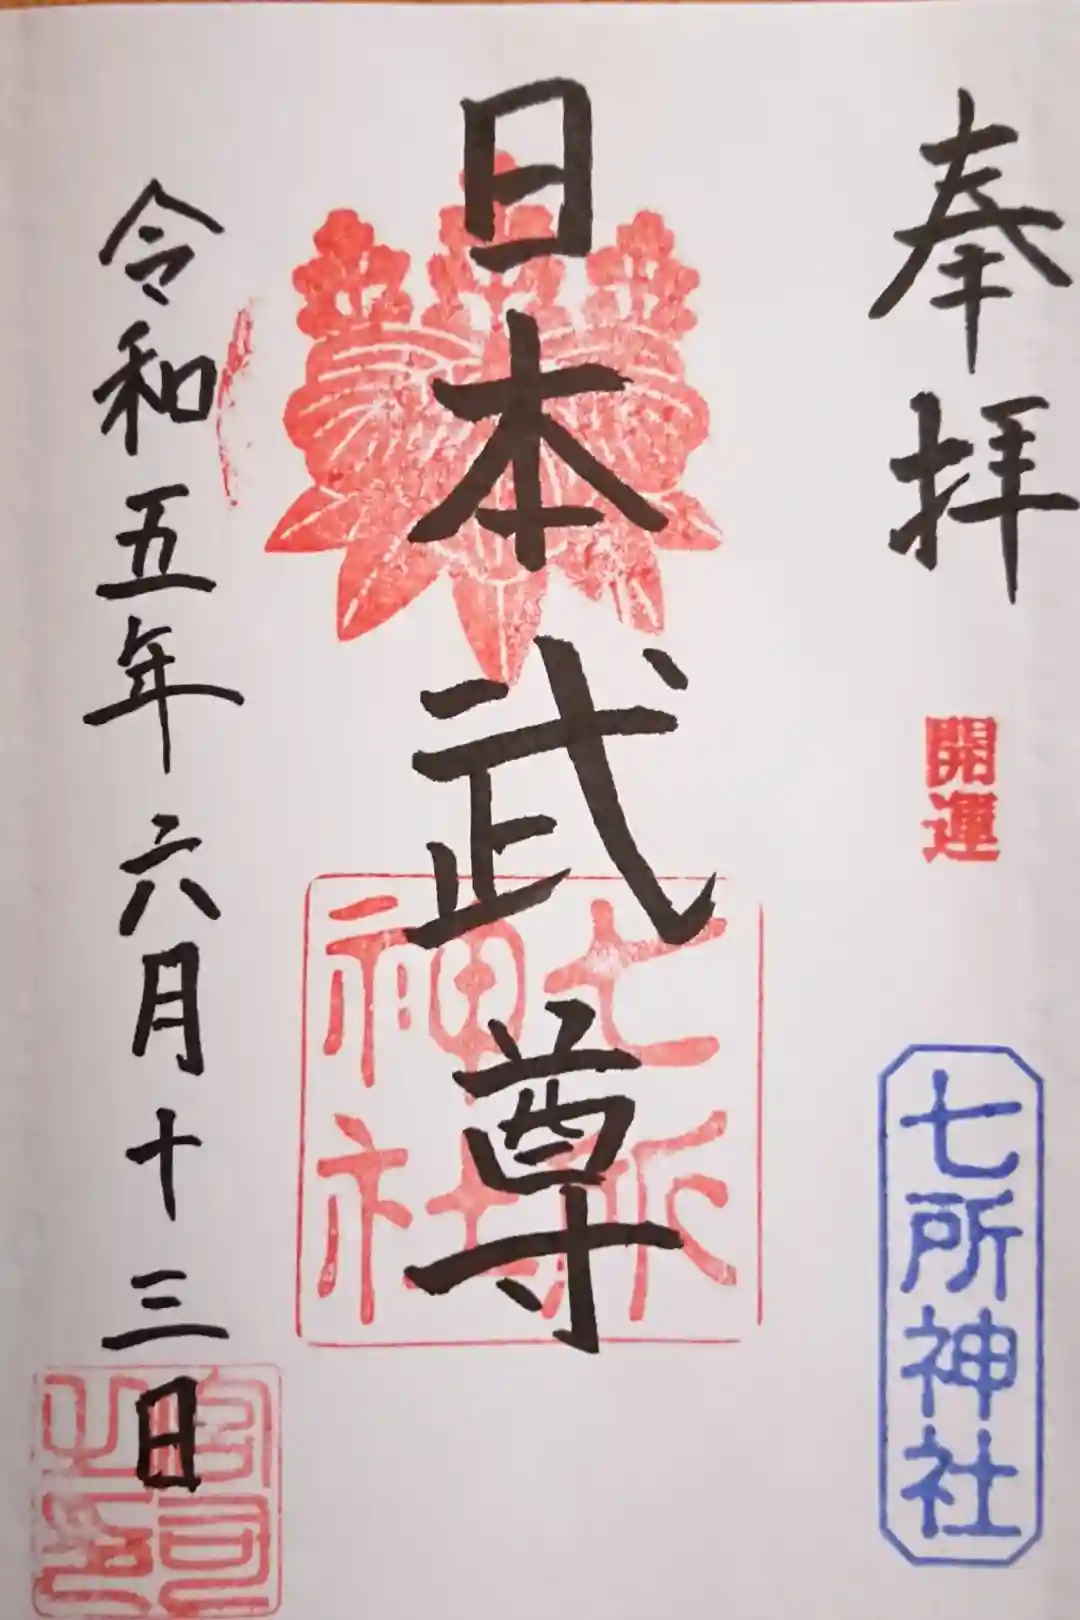 奉拝
開運
七所神社
日本武尊
七所
神社
令和五年六月十三日
宮司
之印